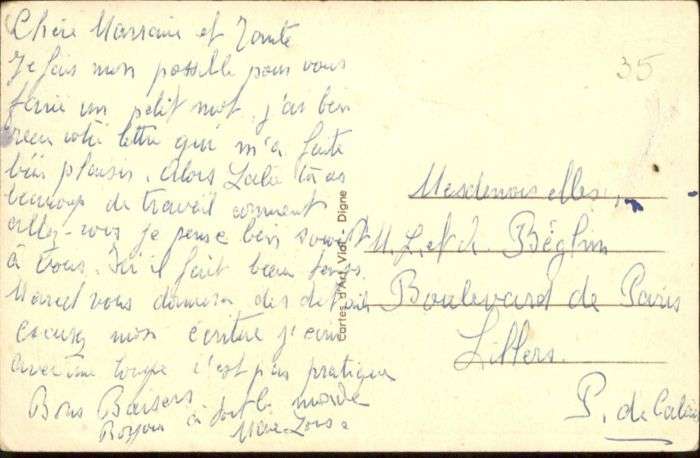 Chère Marraine et Tante
Je fais mon possible pour vous
faire un petit mot. j'ai bien
recu votre lettre qui m'a faite
bien plaisir. Alors tu as
beaucoup de travail comment
allez-vous je pense bien souvent
à vous. Ici il fait beau temps
Marcel vous donnera des details
excusez mon écriture j'ecris
avec une c'est pas pratique
Bons Baisers
Bonjour à tout le monde
35
Mesdemoiselles
M. L. et J. Béghin
Boulevard de Paris
Lillers
P. de Calais
Cartes d'Art Vial - Digne